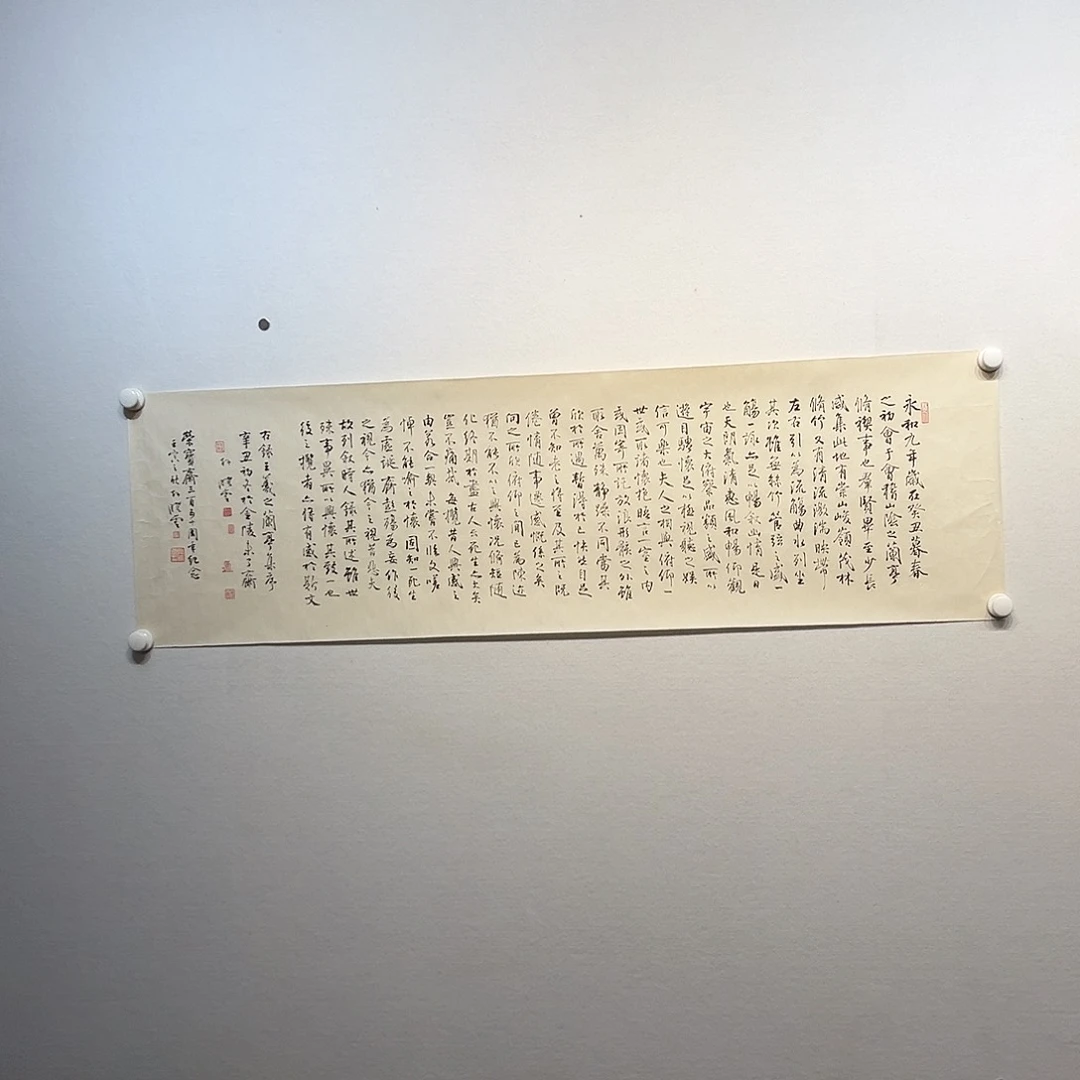 永和九年歲在癸丑暮春
之初會于會稽山陰之蘭亭
脩禊事也羣賢畢至少長
咸集此地有崇山峻嶺茂林
脩竹又有清流激湍映帶
左右引以為流觴曲水列坐
其次雖無絲竹管弦之盛一
觴一詠亦足以暢敘幽情是日
也天朗氣清惠風和暢仰觀
宇宙之大俯察品類之盛所以
遊目騁懷足以極視聽之娛
信可樂也夫人之相與俯仰一
世或取諸懷抱晤言一室之內
或因寄所託放浪形骸之外雖
取舍萬殊靜躁不同當其
欣於所遇暫得於己快然自足
曾不知老之將至及其所之既
倦情隨事遷感慨係之矣
向之所欣俯仰之間已為陳迹
猶不能不以之興懷況脩短隨
化終期於盡古人云死生亦大矣
豈不痛哉每攬昔人興感之
由若合一契未嘗不臨文嗟
悼不能喻之於懷固知一死生
為虛誕齊彭殤為妄作後
之視今亦猶今之視昔悲夫
故列敘時人錄其所述雖世
殊事異所以興懷其致一也
後之攬者亦將有感於斯文
右錄王羲之蘭亭集序
辛丑初冬於金陵未了齋
孙曉雲
榮寶齋三百五十周年纪念
壬寅之秋孙曉雲